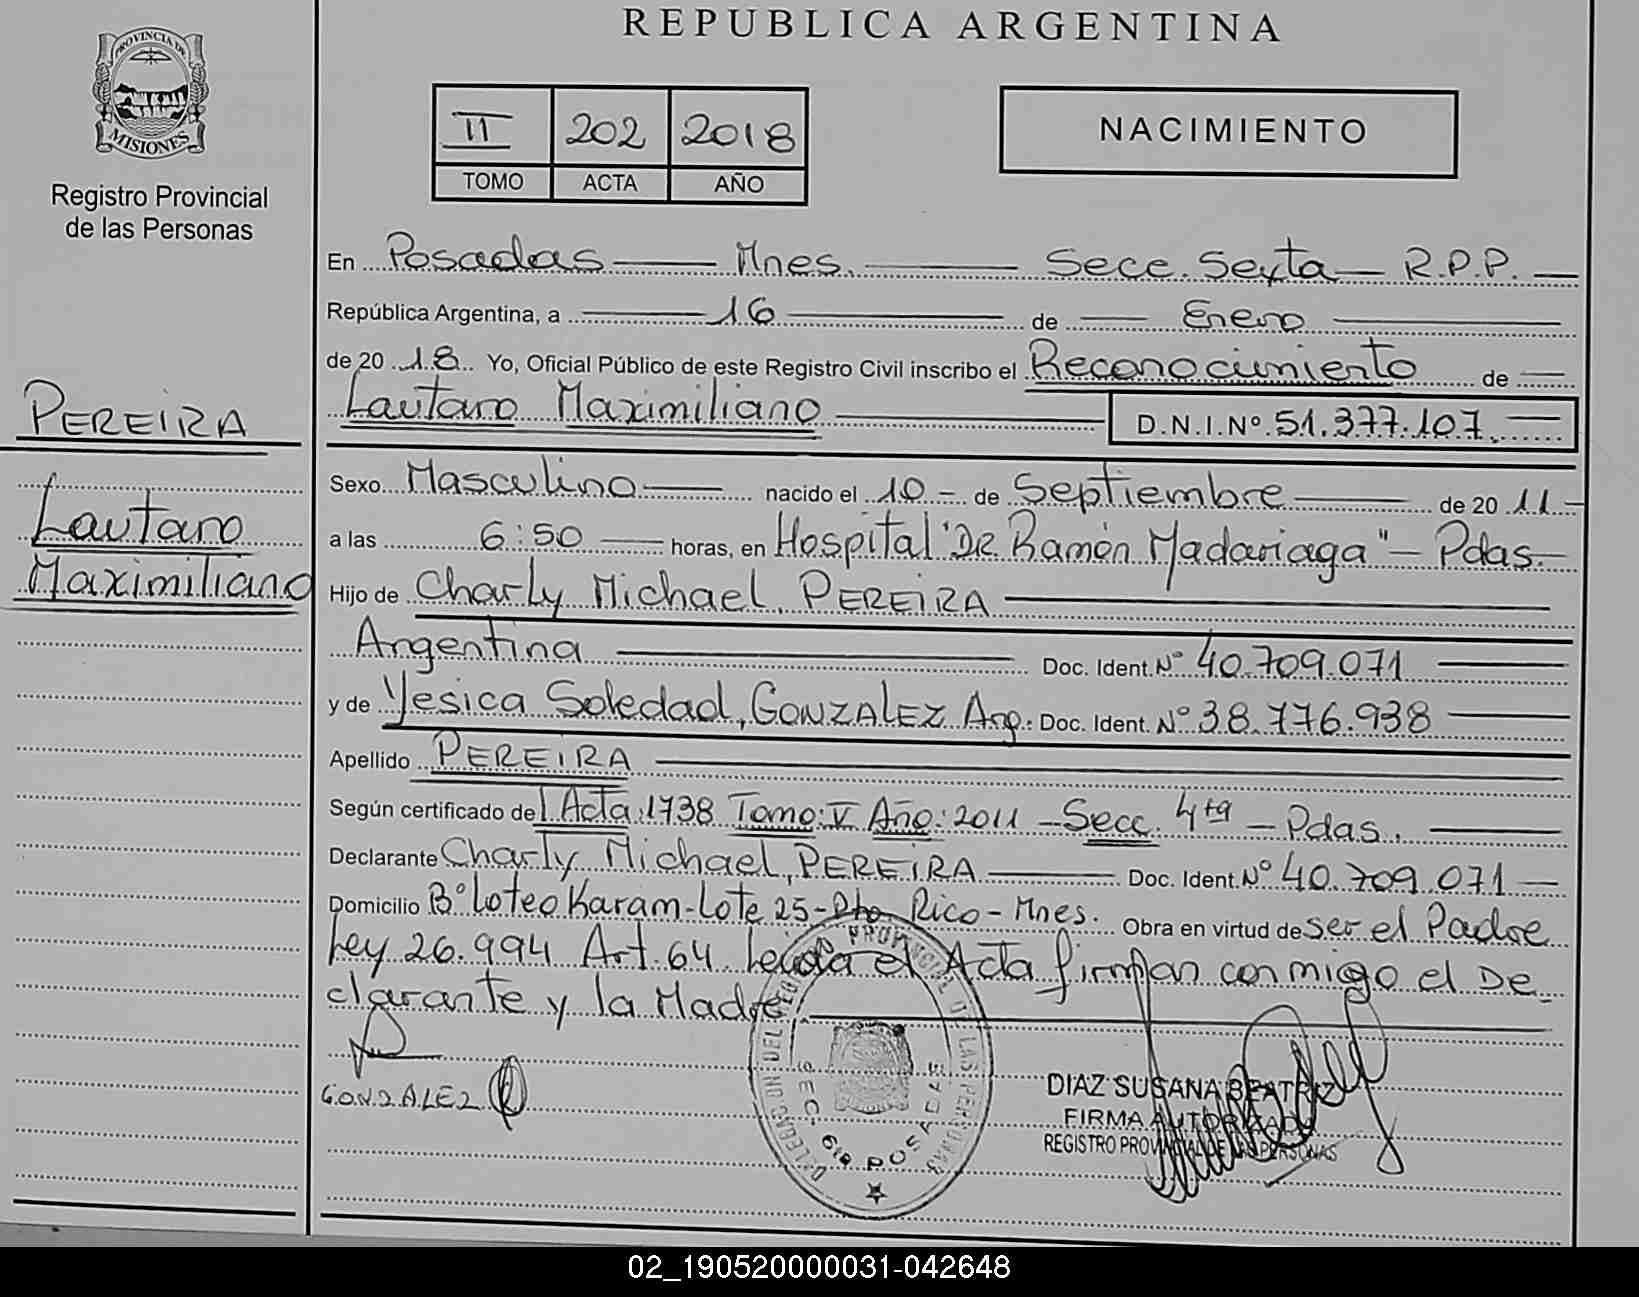 REPUBLICA ARGENTINA
PROVINCIA DE
MISIONES
Registro Provincial
de las Personas
II 202 2018
TOMO ACTA AÑO
NACIMIENTO
PEREIRA
Lautaro
Maximiliano
En Posadas Mnes. Secc. Sexta R.P.P.
República Argentina, a 16 de Enero
de 20 18 Yo, Oficial Público de este Registro Civil inscribo el Reconocimiento de
Lautaro Maximiliano D.N.I.Nº 51.377.107
Sexo Masculino nacido el 10 de Septiembre de 20 11
a las 6:50 horas, en Hospital "DR. Ramón Madariaga" - Pdas.
Hijo de Charly Michael, PEREIRA
Argentina Doc. Ident. Nº 40.709.071
y de Yesica Soledad, GONZALEZ Arg. Doc. Ident. Nº 38.776.938
Apellido PEREIRA
Según certificado de Acta: 1738 Tomo: V Año: 2011 - Secc. 4ta - Pdas.
Declarante Charly Michael, PEREIRA Doc. Ident. Nº 40.709.071
Domicilio Bº Loteo Karam - Lote 25 - Pto. Rico - Mnes. Obra en virtud de ser el Padre
Ley 26.994 Art. 64 Leída el Acta firman conmigo el De-
clarante y la Madre
GONZALEZ
DELEGACION DEL REGISTRO PROVINCIAL DE LAS PERSONAS
SEC. 6ta POSADAS
DIAZ SUSANA BEATRIZ
FIRMA AUTORIZADA
REGISTRO PROVINCIAL DE LAS PERSONAS
02_190520000031-042648